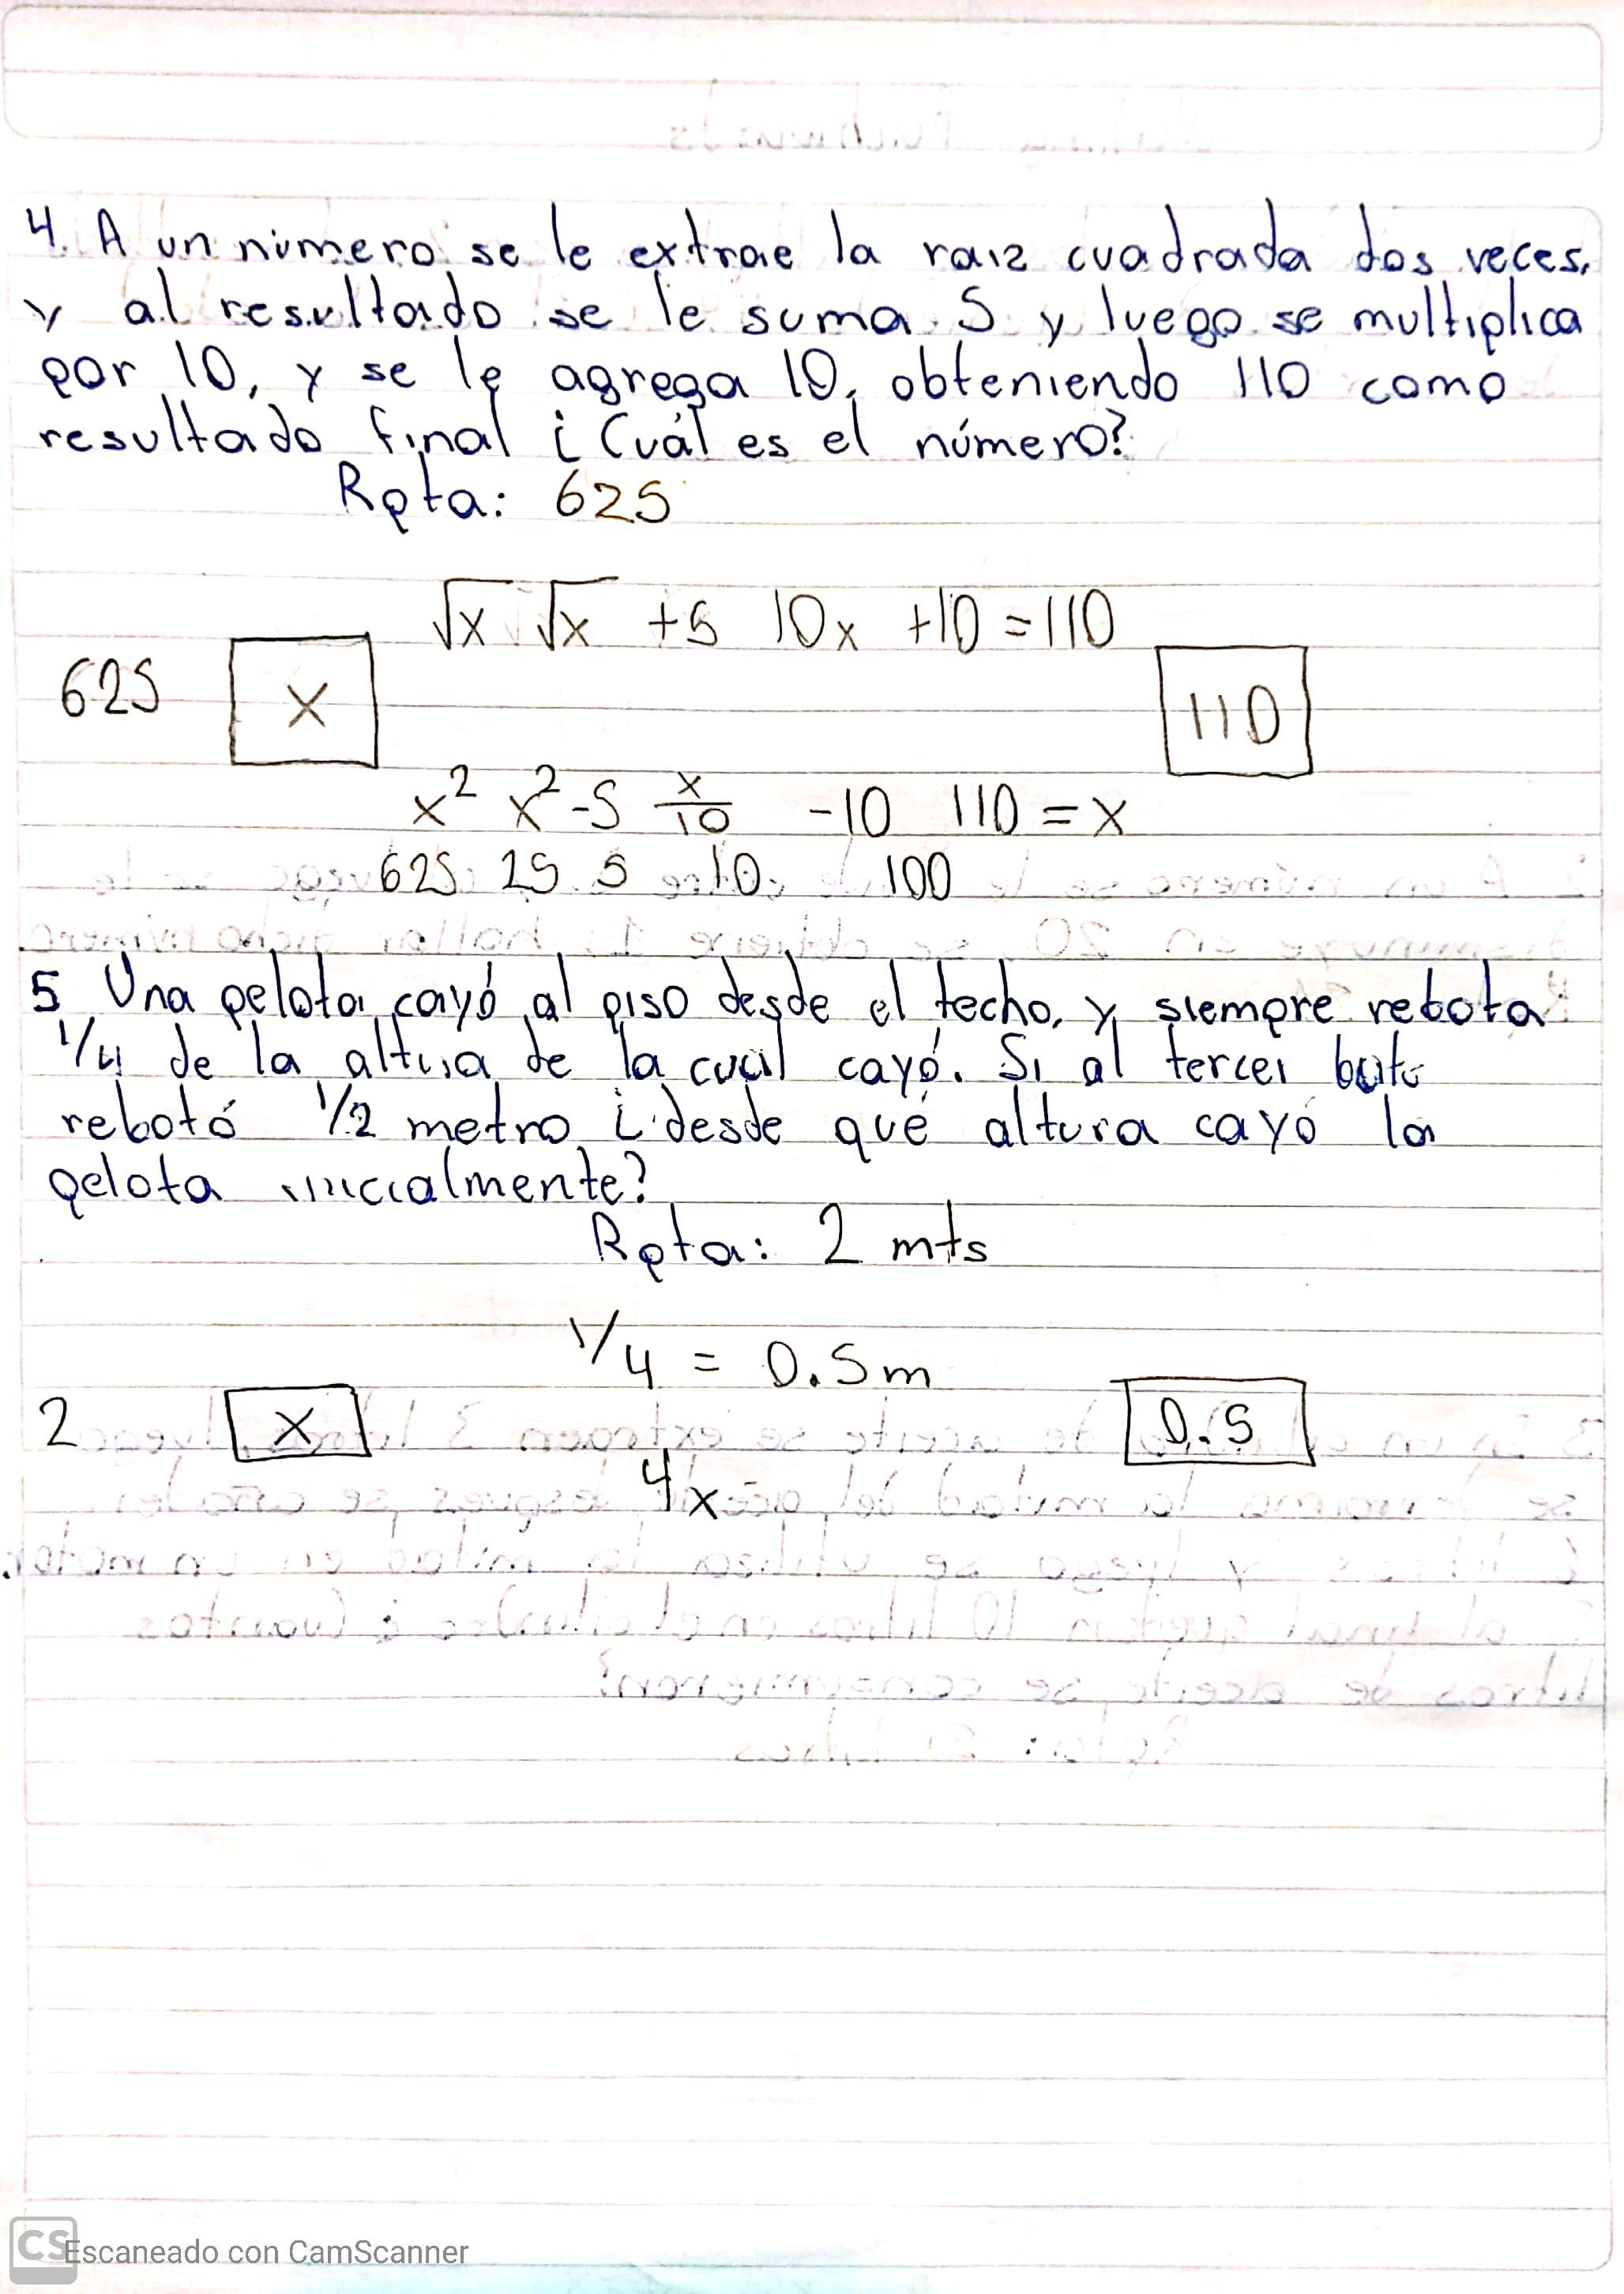 4. A un número se le extrae la raiz cuadrada dos veces,
y al resultado se le suma 5 y luego se multiplica
por 10, y se le agrega 10, obteniendo 110 como
resultado final ¿Cuál es el número?
Rpta: 625
√x √x +5 10x +10 = 110
625 x 110
x² x² -5 x/10 -10 110 = x
625 25 5 10 100
5 Una pelota cayó al piso desde el techo, y siempre rebota
1/4 de la altura de la cual cayó. Si al tercer bote
rebotó 1/2 metro ¿desde qué altura cayó la
pelota inicialmente?
Rpta: 2 mts
1/4 = 0.5m
2 x 0.5
4x
CS Escaneado con CamScanner